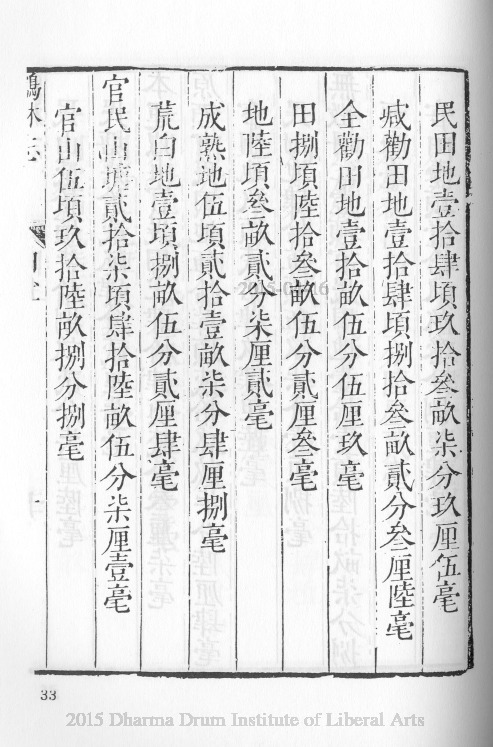 民田地壹拾肆頃玖拾叁畝柒分玖厘伍毫
減勸田地壹拾肆頃捌拾叁畝貳分叁厘陸毫
全勸田地壹拾畝伍分伍厘玖毫
田捌頃陸拾叁畝伍分貳厘叁毫
地陸頃叁畝貳分柒厘貳毫
成熟地伍頃貳拾壹畝柒分肆厘捌毫
荒白地壹頃捌畝伍分貳厘肆毫
官民山塘貳拾柒頃肆拾陸畝伍分柒厘壹毫
官山伍頃玖拾陸畝捌分捌毫
33
2015 Dharma Drum Institute of Liberal Arts